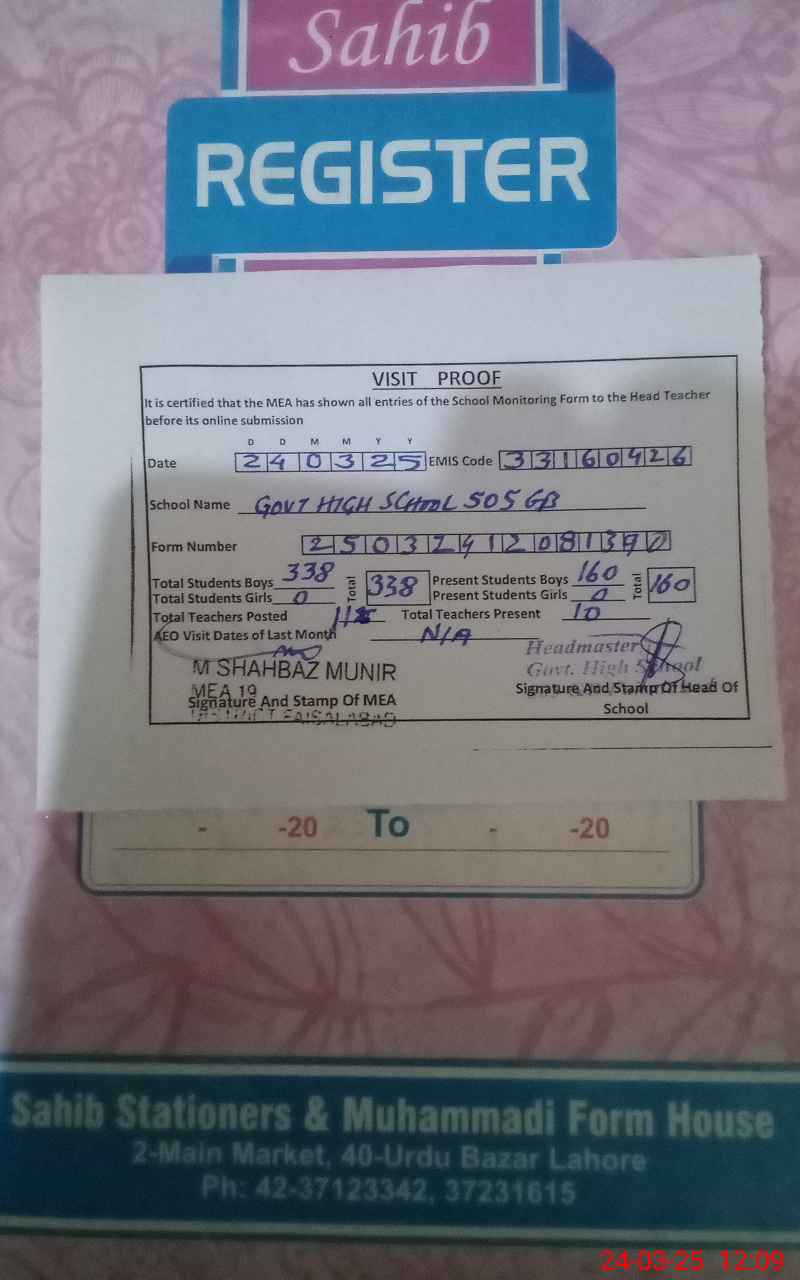 Sahib
REGISTER
VISIT PROOF
It is certified that the MEA has shown all entries of the School Monitoring Form to the Head Teacher
before its online submission
D D M M Y Y
Date 240325 EMIS Code 33160426
School Name GOVT HIGH SCHOOL 505 GB
Form Number 25032412081390
Total Students Boys 338 Total 338 Present Students Boys 160 Total 160
Total Students Girls 0 Present Students Girls 0
Total Teachers Posted 11 Total Teachers Present 10
AEO Visit Dates of Last Month N/A
Headmaster
M SHAHBAZ MUNIR Govt. High School
MEA 19
Signature And Stamp Of MEA Signature And Stamp Of Head Of
School
FAISALABAD
- -20 To - -20
Sahib Stationers & Muhammadi Form House
2-Main Market, 40-Urdu Bazar Lahore
Ph: 42-37123342, 37231615
24-03-25 12:09